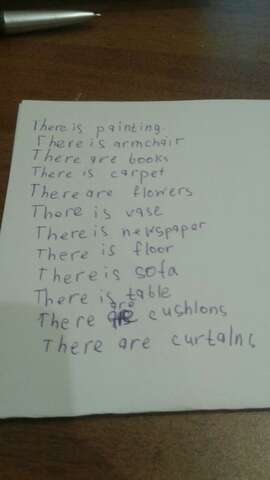 There is painting.
There is armchair
There are books
There is carpet
There are flowers
There is vase
There is newspaper
There is floor
There is sofa
There is table
There are cushions
There are curtains